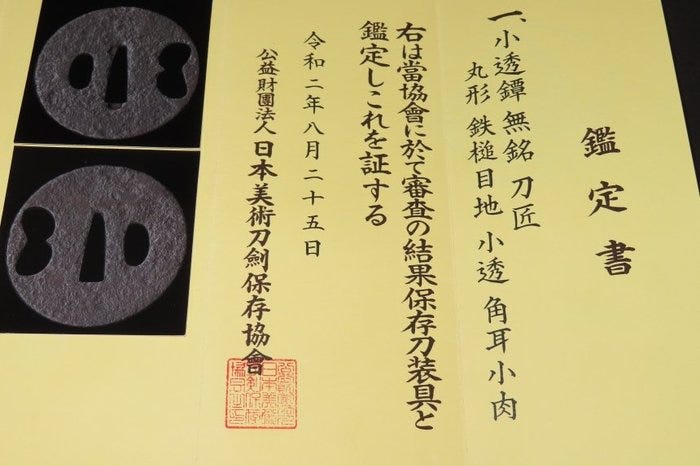 鑑定書
一、小透鐔 無銘 刀匠
丸形 鉄槌目地 小透 角耳小肉
右は當協會に於て審査の結果保存刀装具と
鑑定しこれを証する
令和二年八月二十五日
公益財團法人日本美術刀劍保存協會